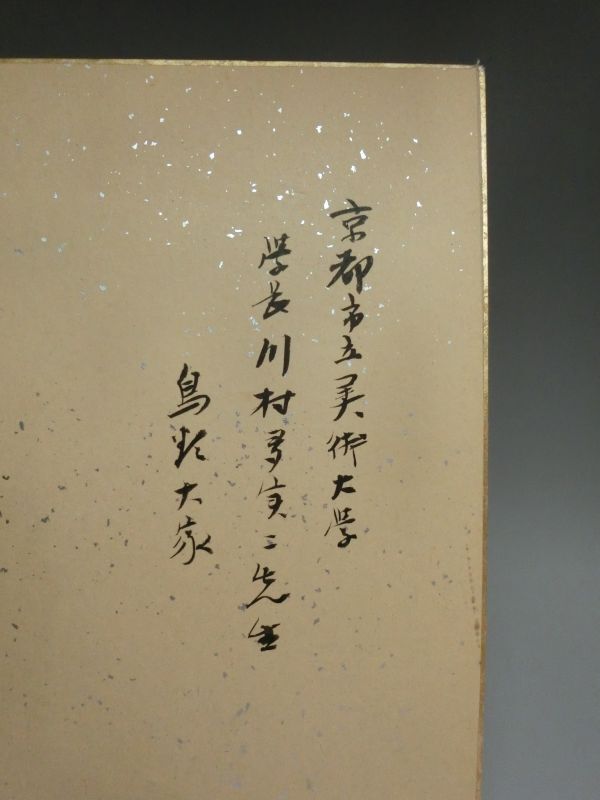 京都市立美術大学
学長川村多実二先生
鳥類大家